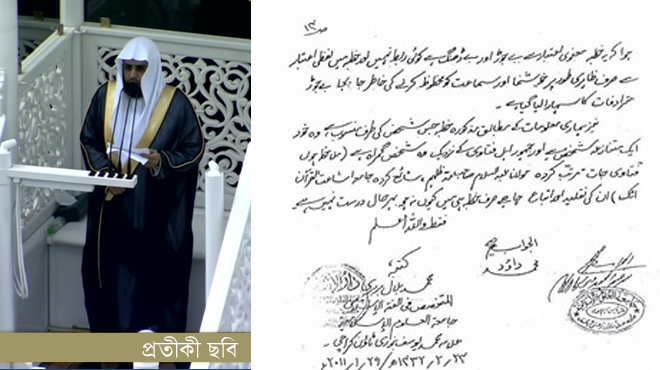 ہوا کہ یہ خطبہ معنوی اعتبار سے بے جوڑ اور بے ڈھنگ ہے کوئی رابطہ نہیں اور خطبہ میں لفظی اعتبار
سے صرف ظاہری طور پر خوشنما اور سماعت کو محظوظ کرنے کی خاطر جا بجا بے جوڑ
مترادفات کا سہارا لیا گیا ہے۔
نیز ہماری معلومات کے مطابق مذکورہ خطبہ جس شخص کی طرف منسوب ہے وہ خود
ایک متنازعہ شخص ہے اور جمہور اہل فتاوی کے نزدیک وہ شخص گمراہ ہے (ملاحظہ ہوں
فتاوی جات مرتب کردہ مولانا عبدالسلام صاحب شائع کردہ جامعہ اشاعت القرآن
اٹک) ان کی تقلید اور اتباع چاہے صرف خطبہ ہی میں کیوں نہ ہو بہرحال درست نہیں ہے
فقط واللہ اعلم
الجواب صحیح
محمد داؤد
کتبہ
محمد بلال
المتخصص فی الفقہ الاسلامی
جامعۃ العلوم الاسلامیۃ
علامہ محمد یوسف بنوری ٹاؤن کراچی۔
۲۳۔۲۔۱۴۳۲ھ/۲۹۔۱۔۲۰۱۱ء
প্রতীকী ছবি